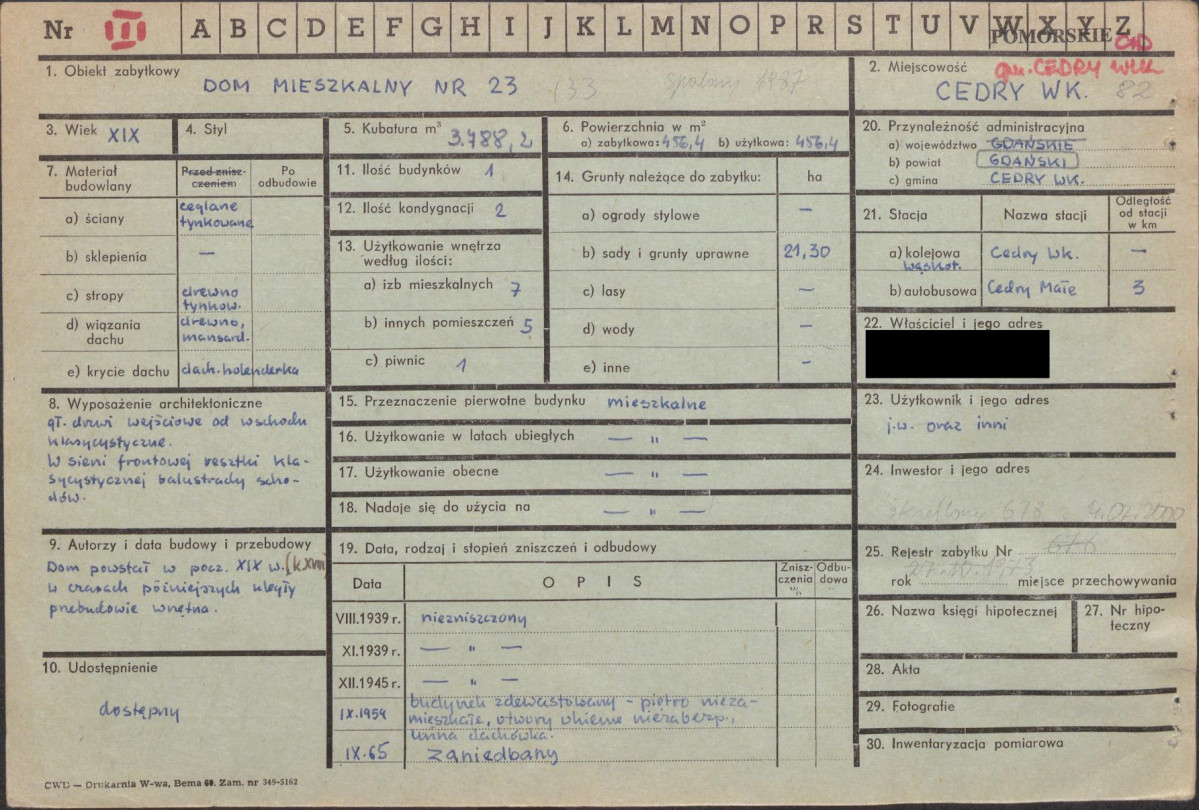 Nr III A B C D E F G H I J K L M N O P R S T U V W X Y Z
POMORSKIE
1. Obiekt zabytkowy
DOM MIESZKALNY NR 23 133 spalony 1987
2. Miejscowość gm. CEDRY WLK
CEDRY WK. 82
3. Wiek XIX
4. Styl
5. Kubatura m³ 3.788,2
6. Powierzchnia w m²
a) zabytkowa: 456,4 b) użytkowa: 456,4
7. Materiał budowlany
Przed zniszczeniem
Po odbudowie
a) ściany ceglane tynkowane
b) sklepienia —
c) stropy drewno tynkow.
d) wiązania dachu drewno, mansard.
e) krycie dachu dach. holenderka
8. Wyposażenie architektoniczne
gł. drzwi wejściowe od wschodu
klasycystyczne.
W sieni frontowej resztki kla-
sycystycznej balustrady scho-
dów.
9. Autorzy i data budowy i przebudowy
Dom powstał w pocz. XIX w. (k. XVIII
w czasach późniejszych uległy
przebudowie wnętrza.
10. Udostępnienie
dostępny
11. Ilość budynków 1
12. Ilość kondygnacji 2
13. Użytkowanie wnętrza
według ilości:
a) izb mieszkalnych 7
b) innych pomieszczeń 5
c) piwnic 1
14. Grunty należące do zabytku: ha
a) ogrody stylowe —
b) sady i grunty uprawne 21,30
c) lasy —
d) wody —
e) inne —
15. Przeznaczenie pierwotne budynku mieszkalne
16. Użytkowanie w latach ubiegłych — " —
17. Użytkowanie obecne — " —
18. Nadaje się do użycia na — " —
19. Data, rodzaj i stopień zniszczeń i odbudowy
Data
OPIS
Zniszczenia %
Odbudowa
VIII.1939 r. niezniszczony
XI.1939 r. — " —
XII.1945 r. — " —
IX.1959 budynek zdewastowany – piętro nieza-
mieszkałe, otwory okienne niezabezp.,
dachówka.
IX.65 zaniedbany
20. Przynależność administracyjna
a) województwo GDAŃSKIE
b) powiat GDAŃSKI
c) gmina CEDRY WK.
21. Stacja
Nazwa stacji
Odległość od stacji w km
a) kolejowa wąskot. Cedry Wk. —
b) autobusowa Cedry Małe 3
22. Właściciel i jego adres
23. Użytkownik i jego adres
j.w. oraz inni
24. Inwestor i jego adres
skreślony 678 z 4.07.2000
25. Rejestr zabytku Nr
rok 27.10.1973 miejsce przechowywania
26. Nazwa księgi hipotecznej
27. Nr hipo-
teczny
28. Akta
29. Fotografie
30. Inwentaryzacja pomiarowa
CWD — Drukarnia W-wa, Bema 60. Zam. nr 349-5162